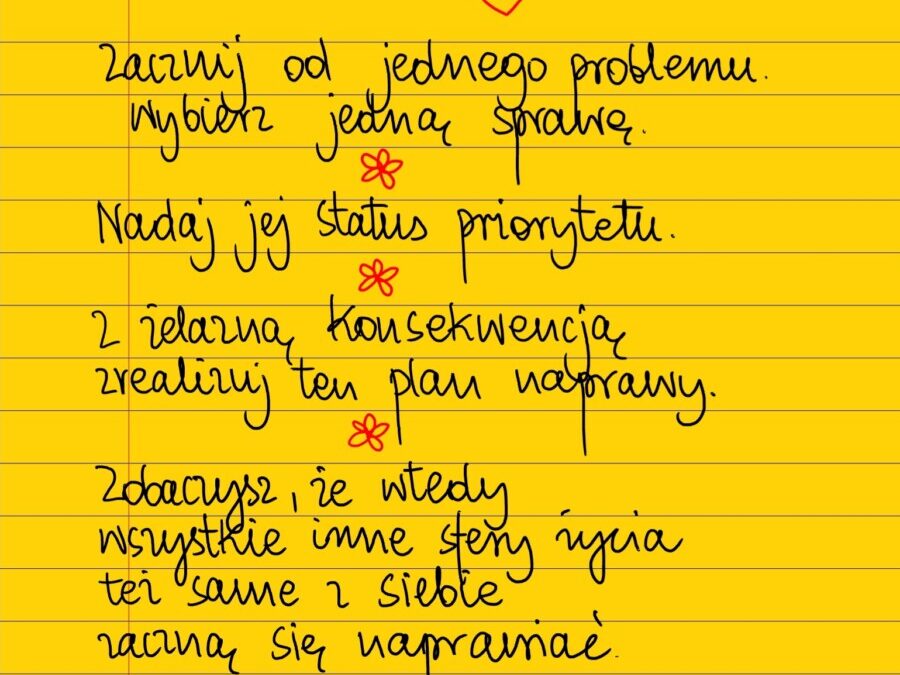 Zacznij od jednego problemu.
Wybierz jedną sprawę.
Nadaj jej status priorytetu.
Z żelazną konsekwencją
zrealizuj ten plan naprawy.
Zobaczysz, że wtedy
wszystkie inne sfery życia
też same z siebie
zaczną się naprawiać.